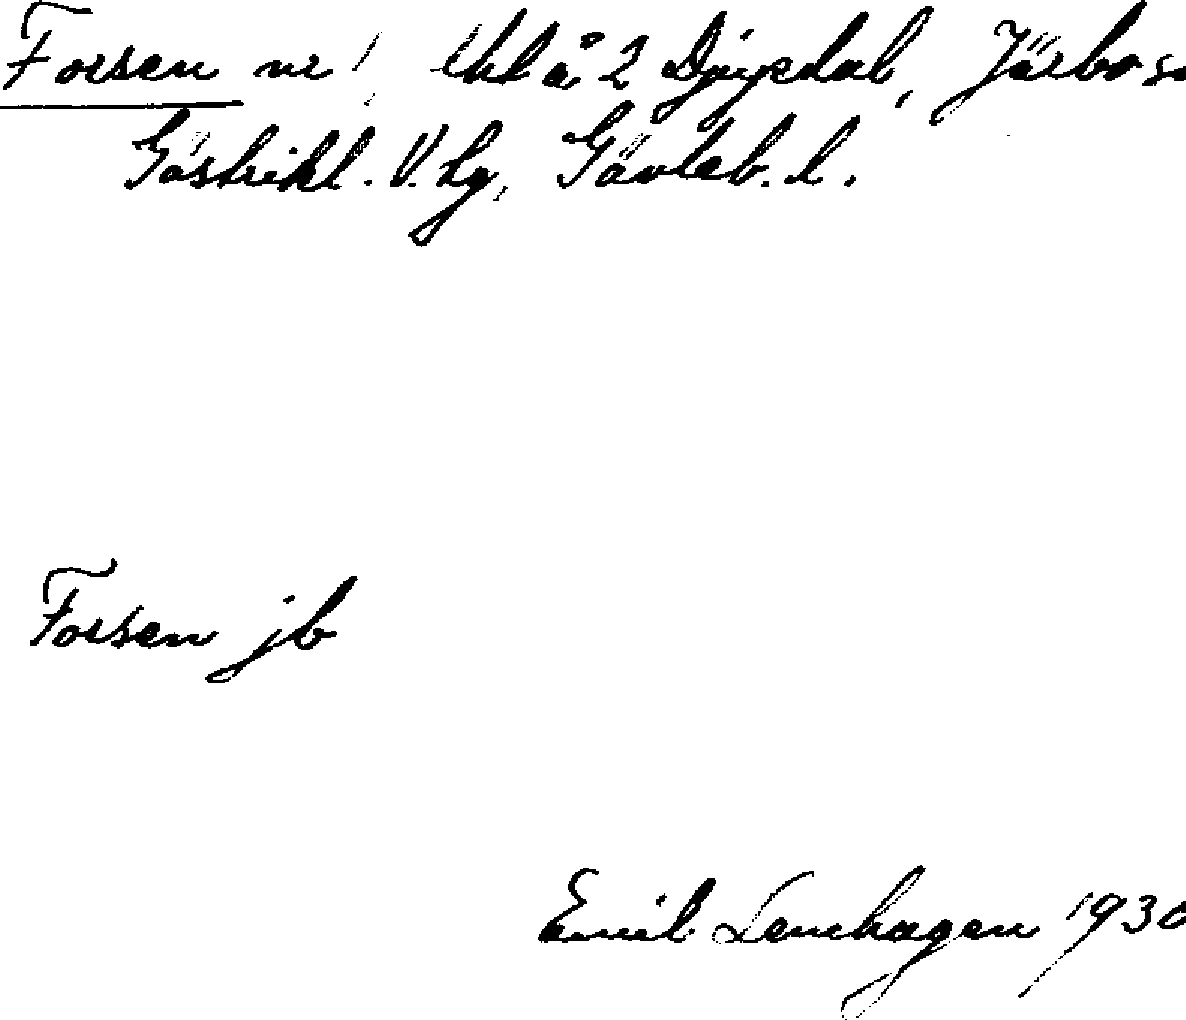 Forsen nr 1, lhl å 2 Djupdal, Järbo sn
Gästrikl. V. hg, Gävleb. l.
Forsen jb
Emil Lenhagen 1930